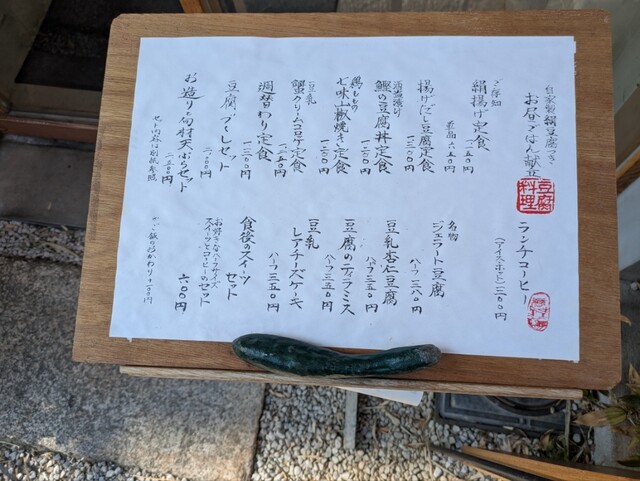 自家製絹豆腐つき
お昼ごはん献立
豆腐料理
ご存知
絹揚げ定食
一二五〇円
揚げだし豆腐定食
単品 六五〇円
鰹の豆腐丼定食
一二〇〇円
鶏もも
七味山椒焼き定食
一三〇〇円
豆乳
蟹クリームコロッケ定食
一三五〇円
週替わり定食
一三〇〇円
豆腐づくしセット
お造り・旬材天ぷらセット
ランチコーヒー
(アイス・ホット)三〇〇円
名物
ジェラート豆腐
ハーフ 三八〇円
豆乳杏仁豆腐
ハーフ 三五〇円
豆腐のティラミス
ハーフ 三五〇円
豆乳
レアチーズケーキ
ハーフ 三五〇円
食後のスイーツ
セット
お好きなハーフサイズ
スイーツとコーヒーのセット
六〇〇円